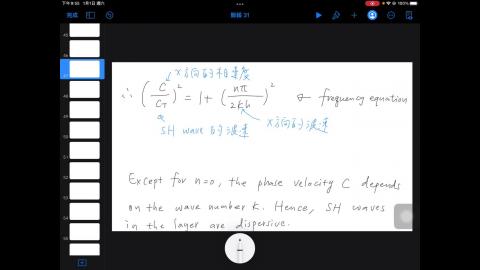 下午9:55 1月1日週六
100%
完成
簡報 31
x方向的相速度
∴ (C/C_T)² = 1 + (nπ/2kh)² & frequency equation
SH wave 的波速
x方向的波速
Except for n=0, the phase velocity C depends
on the wave number k. Hence, SH waves
in the layer are dispersive.